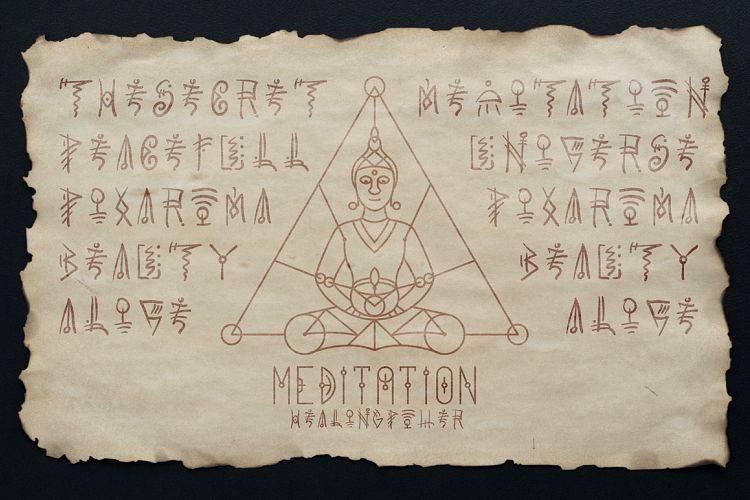 THESECRET
PEACEFULL
PIXAROMA
BEAUTY
ALIVE
MEDITATION
UNIVERSE
PIXAROMA
BEAUTY
ALIVE
MEDITATION
HEALINGPOWER